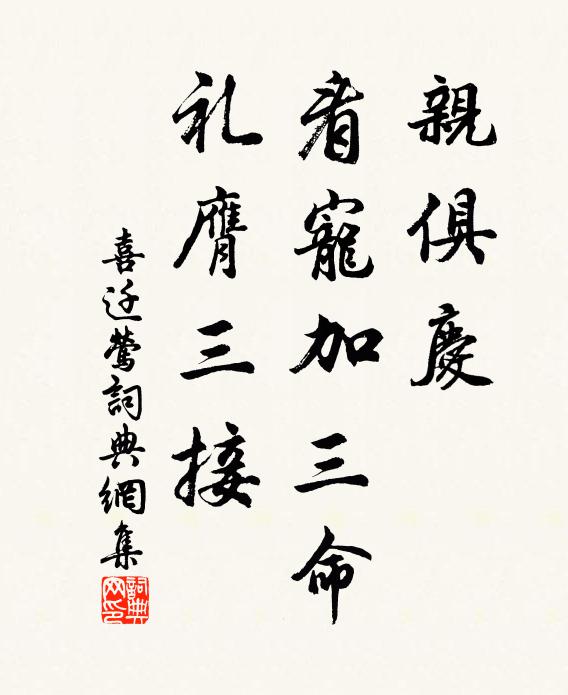 親俱慶
看寵加三命
礼膺三接
喜迁鶯詞典網集
詞典网印